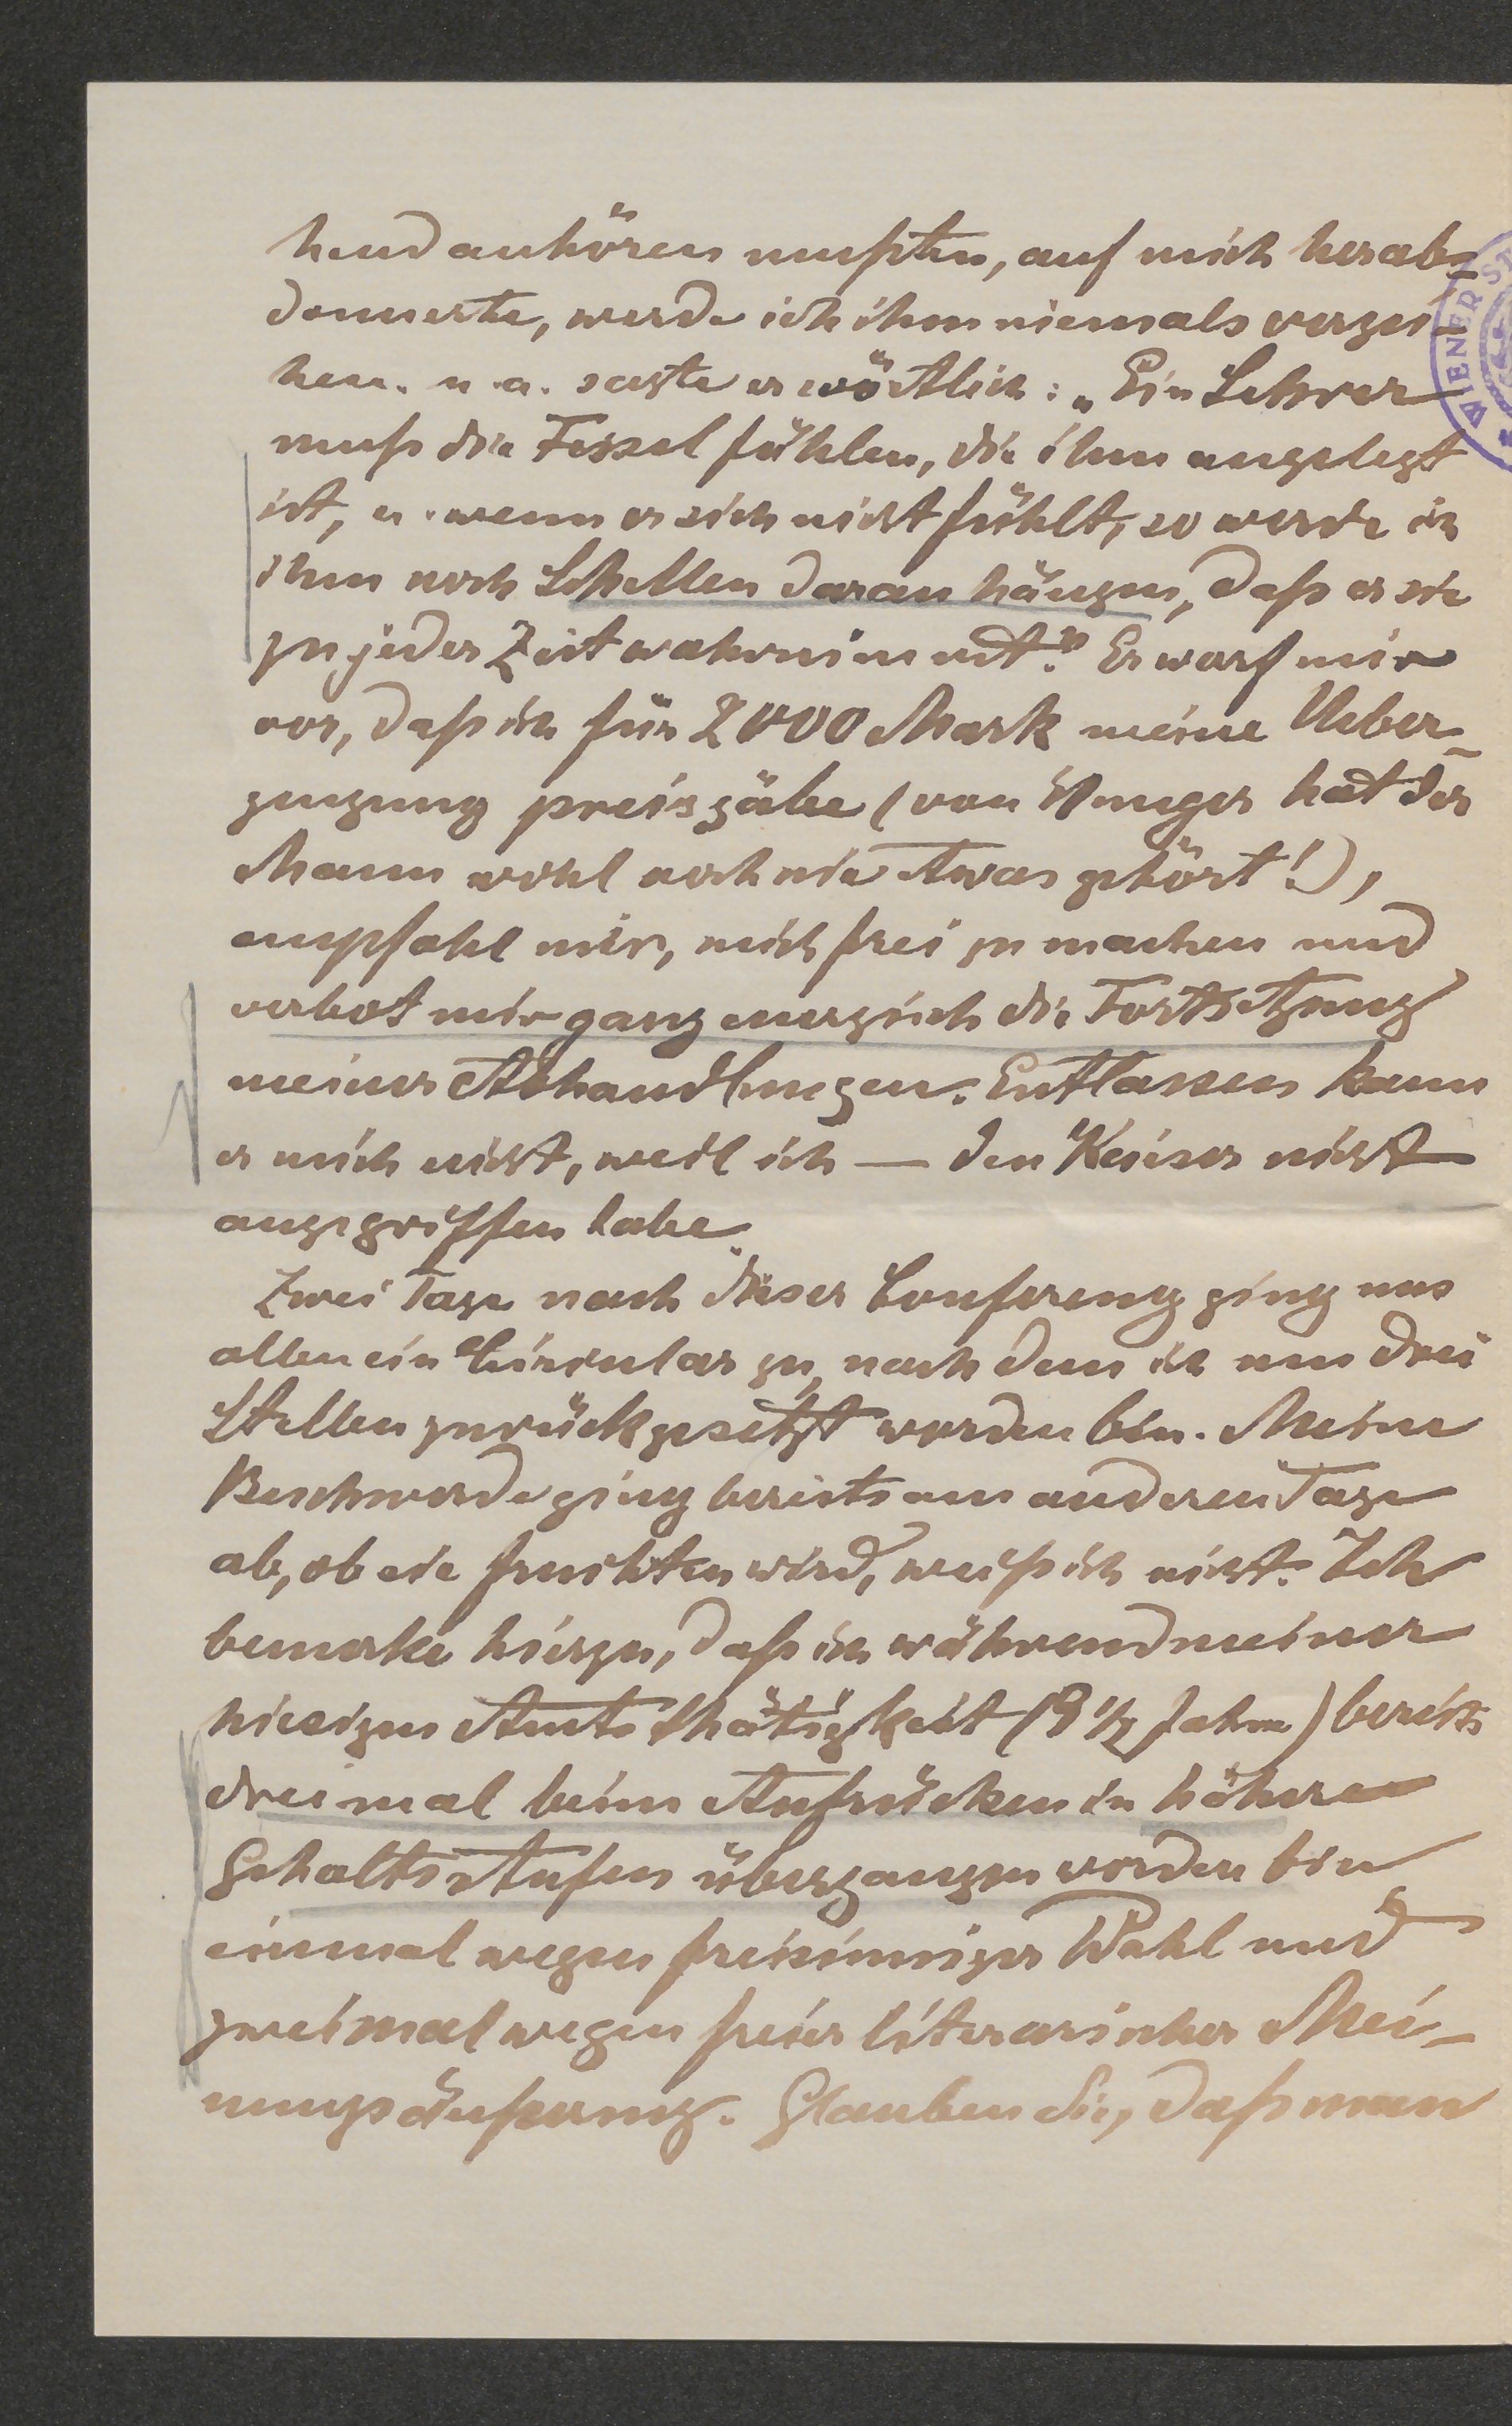 hend anhören mußten, auf mich herab-
donnerte, werde ich ihm niemals verzei-
hen. u. a. sagte er wörtlich: „Ein Lehrer
muß die Fessel fühlen, die ihm angelegt
ist, u. wenn er sich nicht fühlt, so werde ich
ihm noch Schellen daran hängen, daß er sie
zu jeder Zeit wahrnimmt." Er warf mir
vor, daß ich für 2000 Mark meine Ueber-
zeugung preisgäbe (von Hunger hat der
Mann wohl noch nie etwas gehört!),
empfahl mir, mich frei zu machen und
verbot mir ganz energisch die Fortsetzung
meiner Abhandlungen. Entlassen kann
er mich nicht, weil ich — den Kaiser nicht
angegriffen habe.
Zwei Tage nach dieser Conferenz ging uns
allen ein Circular zu, nach dem ich um drei
Stellen zurückgesetzt worden bin. Meine
Beschwerde ging bereits am anderen Tage
ab, ob sie fruchten wird, weiß ich nicht. Ich
bemerke hierzu, daß ich während meiner
hiesigen Amtsthätigkeit (9 1/2 Jahre) bereits
dreimal beim Aufrücken in höhere
Gehaltsstufen übergangen worden bin
einmal wegen freisinniger Wahl und
zweimal wegen freier literarischer Mei-
nungsäußerung. Glauben Sie, daß man
WIENER ST